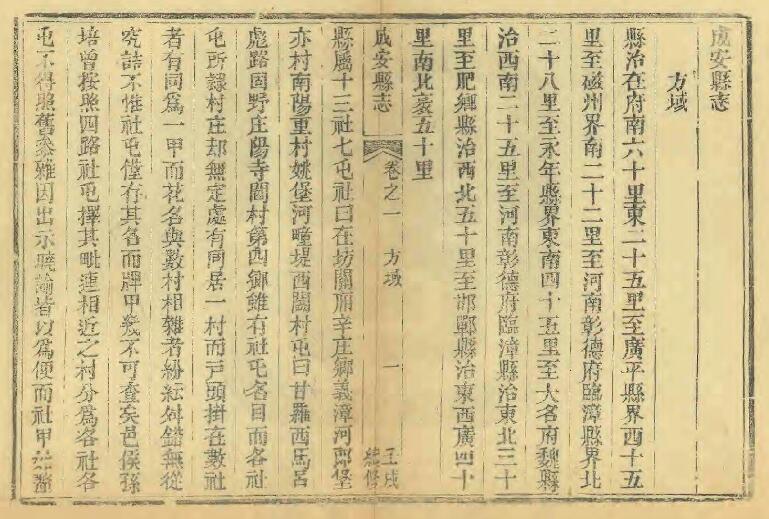 成安縣志
方域
縣治在府南六十里東二十五里至廣平縣界西十五
里至磁州界南二十二里至河南彰德府臨漳縣界北
二十八里至永年縣界東南四十五里至大名府魏縣
治西南二十五里至河南彰德府臨漳縣治東北三十
里至肥鄉縣治西北五十里至邯鄲縣治東西廣四十
里南北袤五十里
成安縣志 卷之一 方域 一 壬戌續修
縣屬十三社七屯社曰在坊關廂辛庄鄉義漳河郎堡
亦村南陽重村姚堡河疃堤西閻村屯曰甘羅西馬呂
彪路固野庄陽寺閻村第四鄉雖有社屯名目而各社
屯所隷村庄却無定處有同居一村而戸頭掛在數社
者有同爲一甲而花名與數村相雜者紛紜舛錯無從
究詰不惟社屯僅存其名而牌甲幾不可查矣邑侯孫
培曾按照四路社屯擇其毗連相近之村分爲各社各
屯不得照舊參雜因出示曉諭皆以爲便而社甲